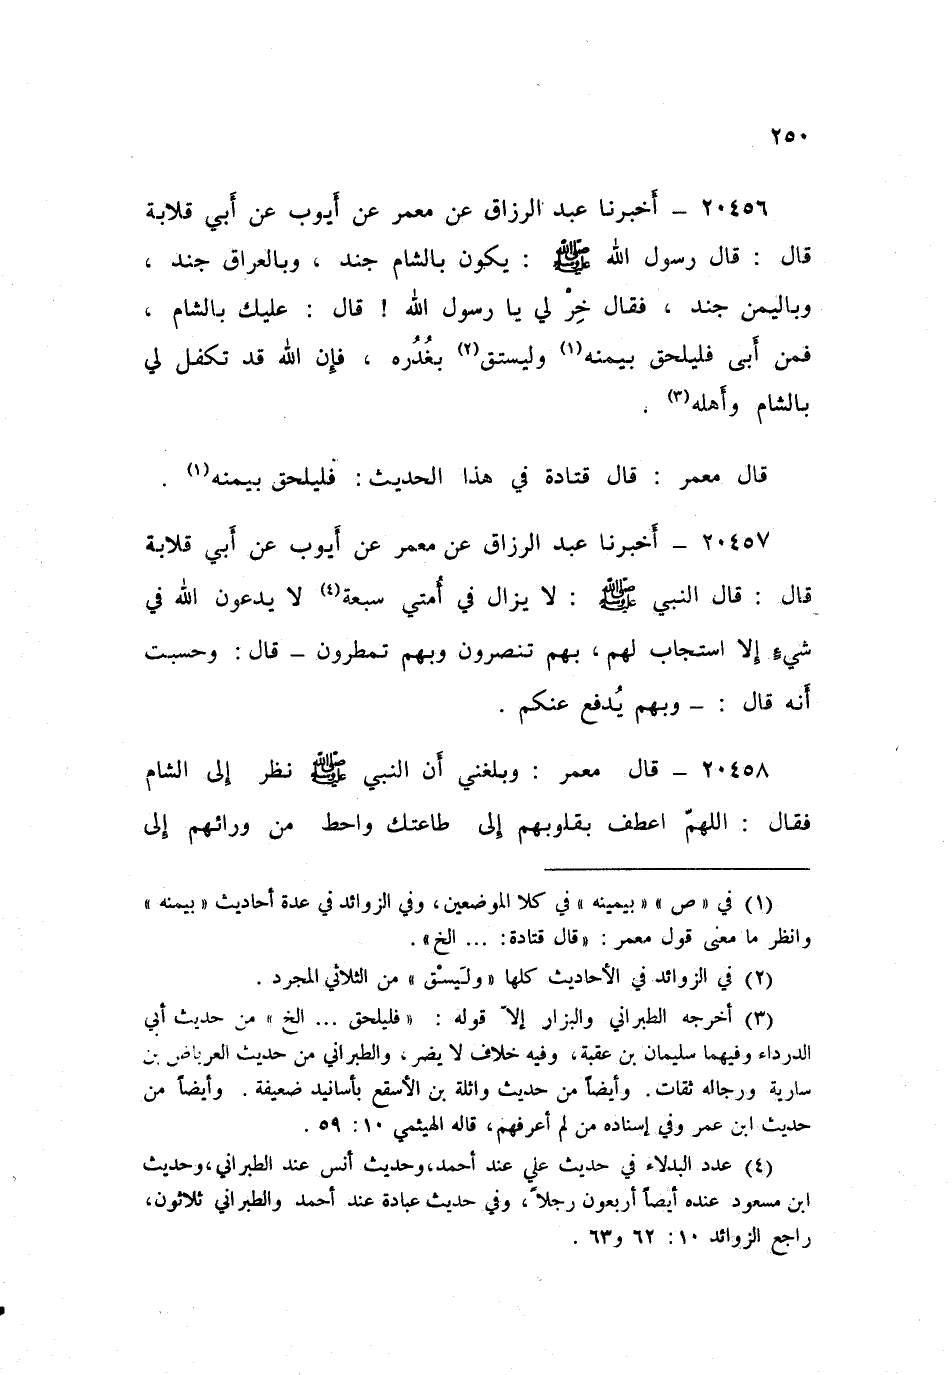 ٢٥٠
٢٠٤٥٦ ـ أَخبرنا عبد الرزاق عن معمر عن أَيوب عن أَبي قلابة
قال : قال رسول الله ﷺ : يكون بالشام جند ، وبالعراق جند ،
وباليمن جند ، فقال خِرْ لي يا رسول الله ! قال : عليك بالشام ،
فمن أَبى فليلحق بيمنه(١) وليستق(٢) بغُدُره ، فإن الله قد تكفل لي
بالشام وأَهله(٣) .
قال معمر : قال قتادة في هذا الحديث : فليلحق بيمنه(١) .
٢٠٤٥٧ ـ أَخبرنا عبد الرزاق عن معمر عن أَيوب عن أَبي قلابة
قال : قال النبي ﷺ : لا يزال في أُمتي سبعة(٤) لا يدعون الله في
شيءٍ إلا استجاب لهم ، بهم تنصرون وبهم تمطرون ـ قال : وحسبت
أَنه قال : ـ وبهم يُدفع عنكم .
٢٠٤٥٨ ـ قال معمر : وبلغني أَن النبي ﷺ نظر إلى الشام
فقال : اللهمّ اعطف بقلوبهم إلى طاعتك واحط من ورائهم إلى
(١) في « ص » « بيمينه » في كلا الموضعين ، وفي الزوائد في عدة أحاديث « بيمنه »
وانظر ما معنى قول معمر : « قال قتادة: ... الخ» .
(٢) في الزوائد في الأحاديث كلها « ولَيَسْق » من الثلاثي المجرد .
(٣) أخرجه الطبراني والبزار إلاّ قوله : « فليلحق ... الخ » من حديث أبي
الدرداء وفيهما سليمان بن عقبة ، وفيه خلاف لا يضر ، والطبراني من حديث العرباض بن
سارية ورجاله ثقات . وأيضاً من حديث واثلة بن الأسقع بأسانيد ضعيفة . وأيضاً من
حديث ابن عمر وفي إسناده من لم أعرفهم ، قاله الهيثمي ١٠: ٥٩ .
(٤) عدد البدلاء في حديث علي عند أحمد، وحديث أنس عند الطبراني ، وحديث
ابن مسعود عنده أيضاً أربعون رجلاً ، وفي حديث عبادة عند أحمد والطبراني ثلاثون ،
راجع الزوائد ١٠: ٦٢ و٦٣ .